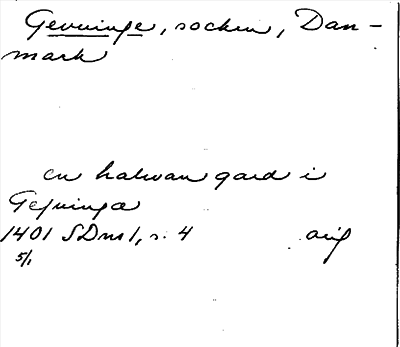 Gevninge, socken, Dan-
mark
en halwan gard i
Gefninga
1401 SDns 1, s. 4 orig
5/1